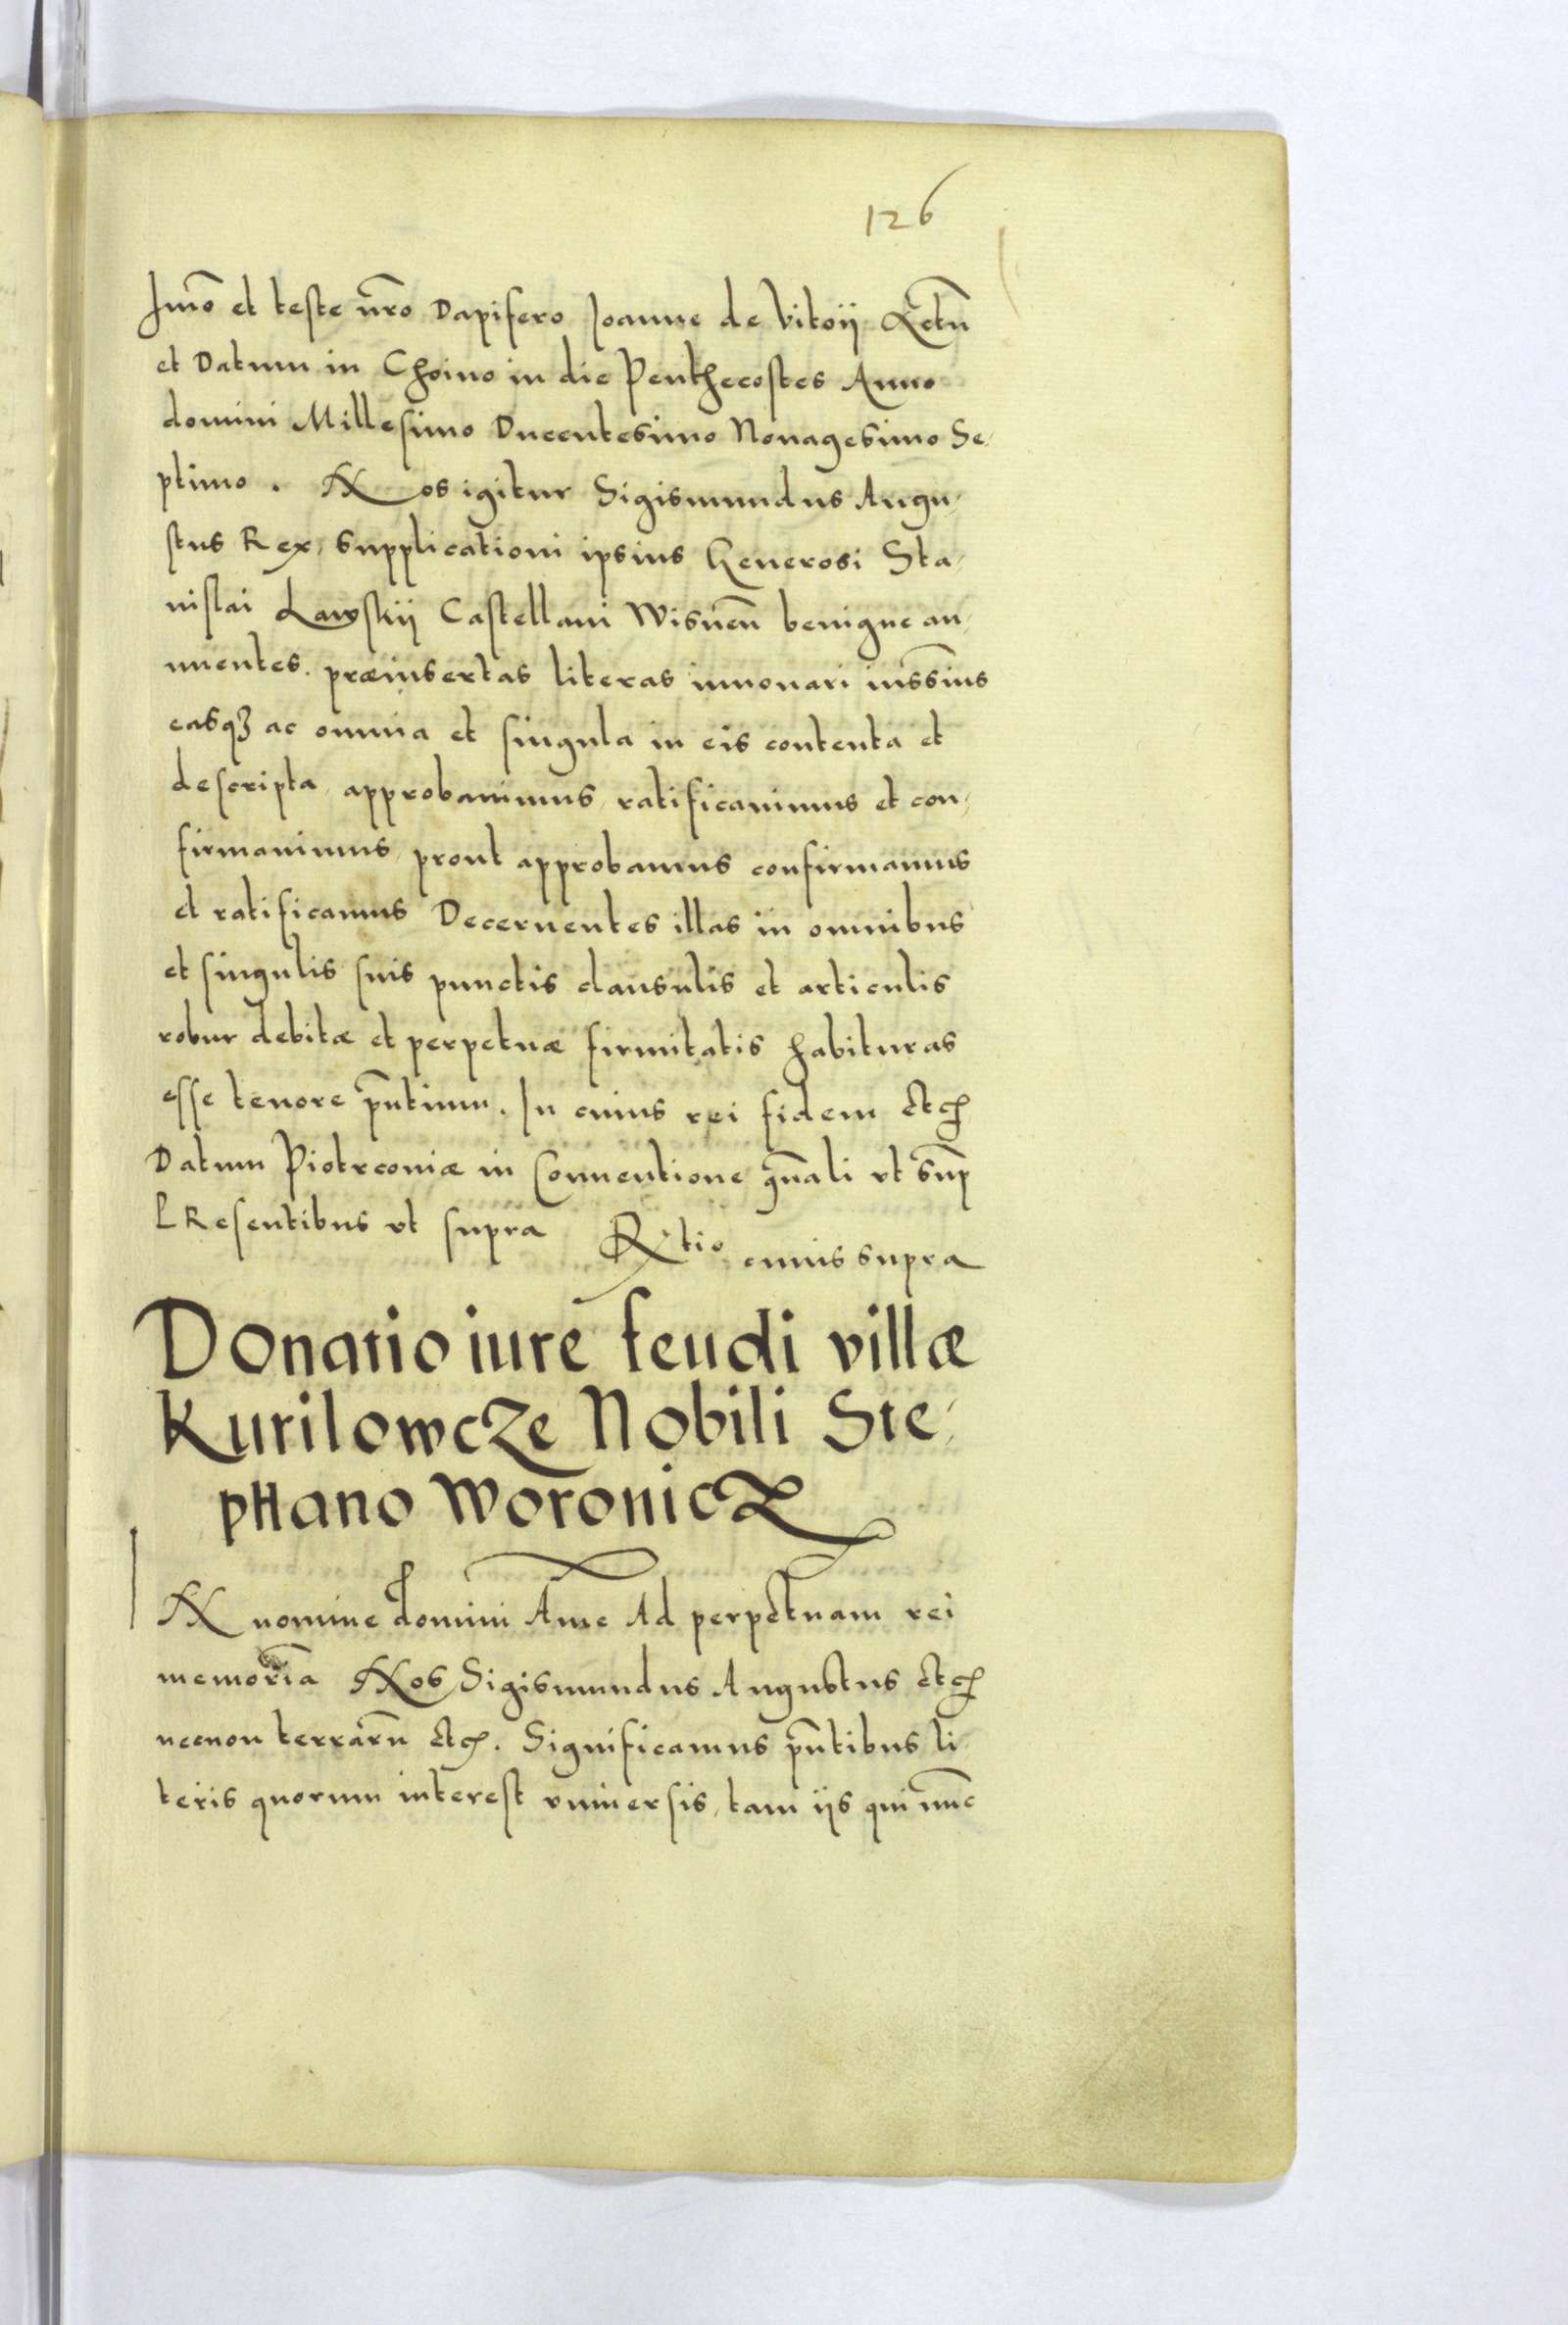 126
Imō et teste nr̄o Dapifero Joanne de Vitoÿ Actū
et Datum in Choino in die Penthecostes Anno
domini Millesimo Ducentesimo Nonagesimo Se-
ptimo. Nos igitur Sigismundus Augu-
stus Rex, supplicationi ipsius Generosi Sta-
nislai Lawskÿ Castellani Wisneñ benigne an-
nuentes. præinsertas literas innouari iussim̄us
easqꝫ ac omnia et singula in eis contenta et
descripta, approbauimus, ratificauimus et con-
firmauimus, prout approbamus confirmamus
et ratificamus Decernentes illas in omnibus
et singulis suis punctis clausulis et articulis
robur debitæ et perpetuæ firmitatis habituras
esse tenore pn̄tium. In cuius rei fidem Etc
Datum Piotrconiæ in Conuentione gn̄ali vt sup̄
PResentibus vt supra Rtio cuius supra
Donatio iure feudi villæ
Kurilowcze Nobili Ste-
pHano Woronicz
IN nomine domini Ame Ad perpetuam rei
memoriā Nos Sigismundus Augustus Etc
necnon terrarū Etc. Significamus pn̄tibus li
teris quorum interest vniuersis, tam ijs qui nunc